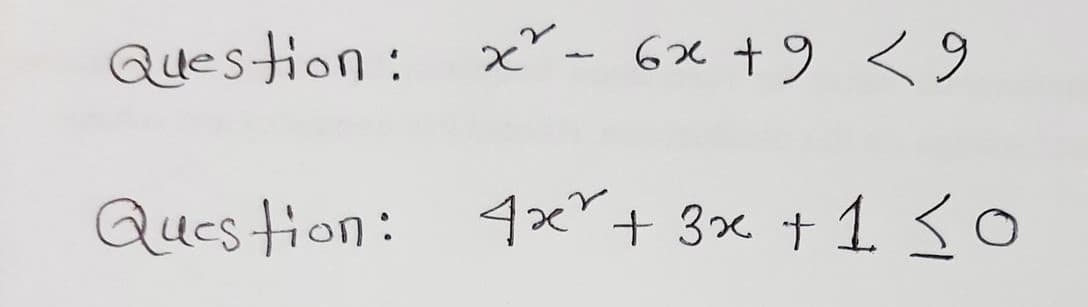 Question: x² - 6x + 9 < 9
Question: 4x² + 3x + 1 ≤ 0